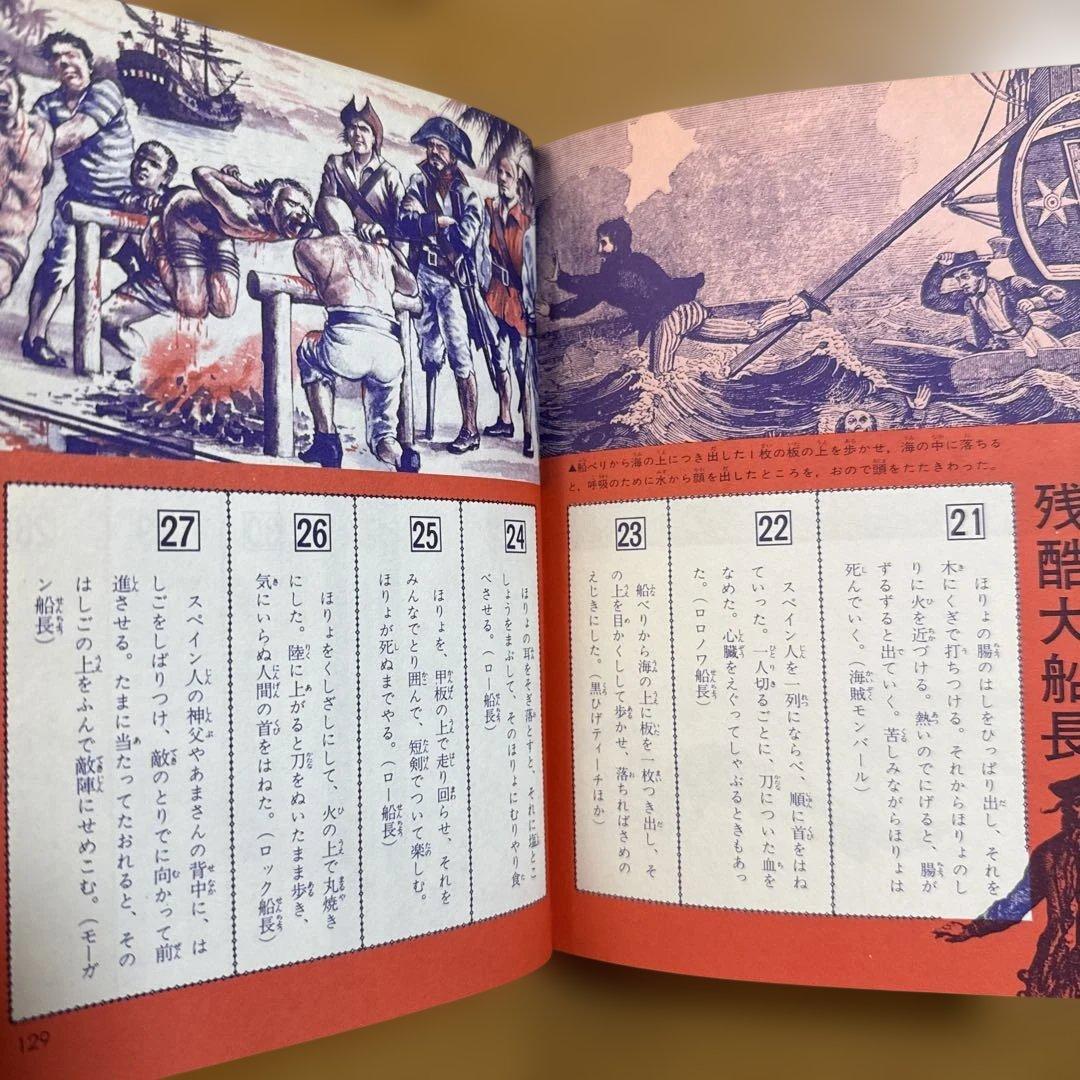 残酷大船長
▲船べりから海の上につき出した1枚の板の上を歩かせ，海の中に落ちる
と，呼吸のために水から頭を出したところを，おので頭をたたきわった。
21
ほりょの腸のはしをひっぱり出し、それを
木にくぎで打ちつける。それからほりょのし
りに火を近づける。熱いのでにげると、腸が
ずるずると出ていく。苦しみながらほりょは
死んでいく。（海賊モンバール）
22
スペイン人を一列にならべ、順に首をはね
ていった。一人切るごとに、刀についた血を
なめた。心臓をえぐってしゃぶるときもあっ
た。（ロロノワ船長）
23
船べりから海の上に板を一枚つき出し、そ
の上を目かくしして歩かせ、落ちればさめの
えじきにした。（黒ひげティーチほか）
24
ほりょの耳をそぎ落とすと、それに塩とこ
しょうをまぶして、そのほりょにむりやり食
べさせる。（ロー船長）
25
ほりょを、甲板の上で走り回らせ、それを
みんなでとり囲んで、短剣でついて楽しむ。
ほりょが死ぬまでやる。（ロー船長）
26
ほりょをくしざしにして、火の上で丸焼き
にした。陸に上がると刀をぬいたまま歩き、
気にいらぬ人間の首をはねた。（ロック船長）
27
スペイン人の神父やあまさんの背中に、は
しごをしばりつけ、敵のとりでに向かって前
進させる。たまに当たってたおれると、その
はしごの上をふんで敵陣にせめこむ。（モーガ
ン船長）
129